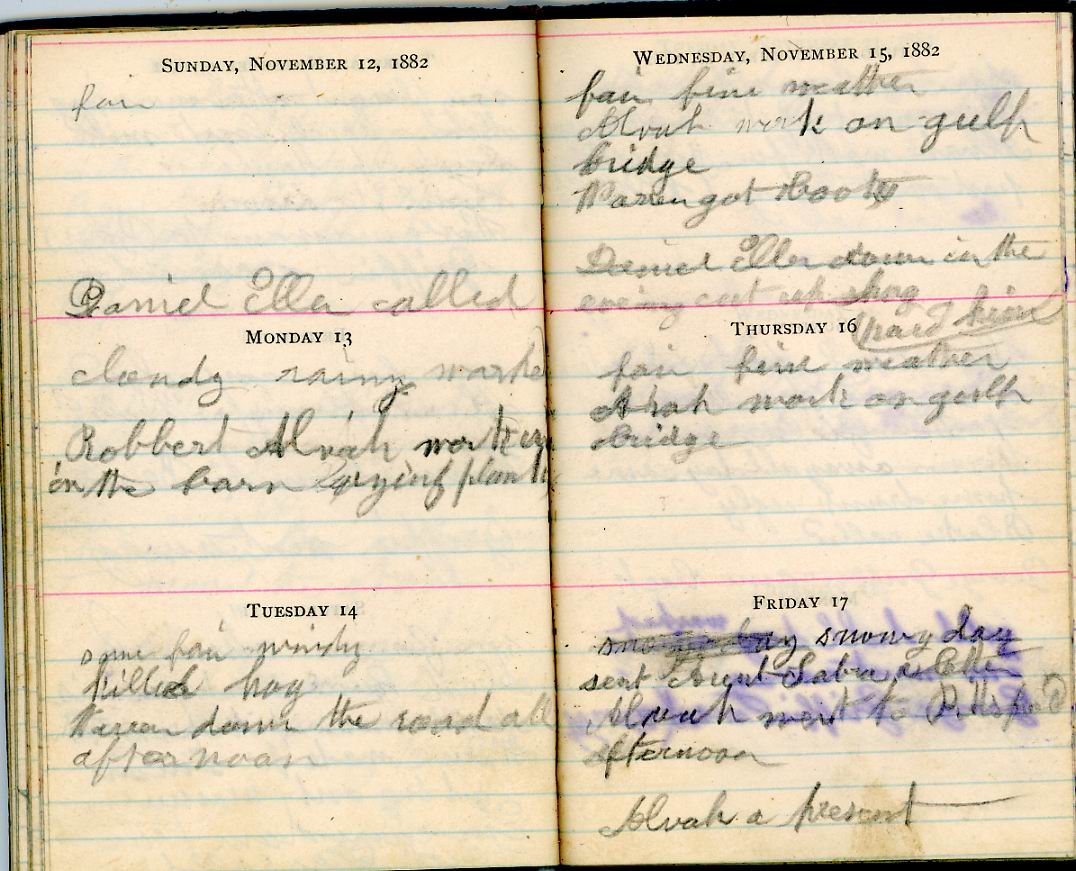 SUNDAY, NOVEMBER 12, 1882
fair
Daniel Ellen called
MONDAY 13
cloudy rainy
Robbert Alvah
on the barn
TUESDAY 14
some fair windy
killed hog
down the road all
afternoon
WEDNESDAY, NOVEMBER 15, 1882
fair fine weather
Alvah work on gulf
bridge
got Boots
Daniel Ellen down in the
evening cut up hog
paid him
THURSDAY 16
fair fine weather
Alvah work on gulf
bridge
FRIDAY 17
snowy day
sent Aunt Sabra a letter
Alvah went to
afternoon
Alvah a present